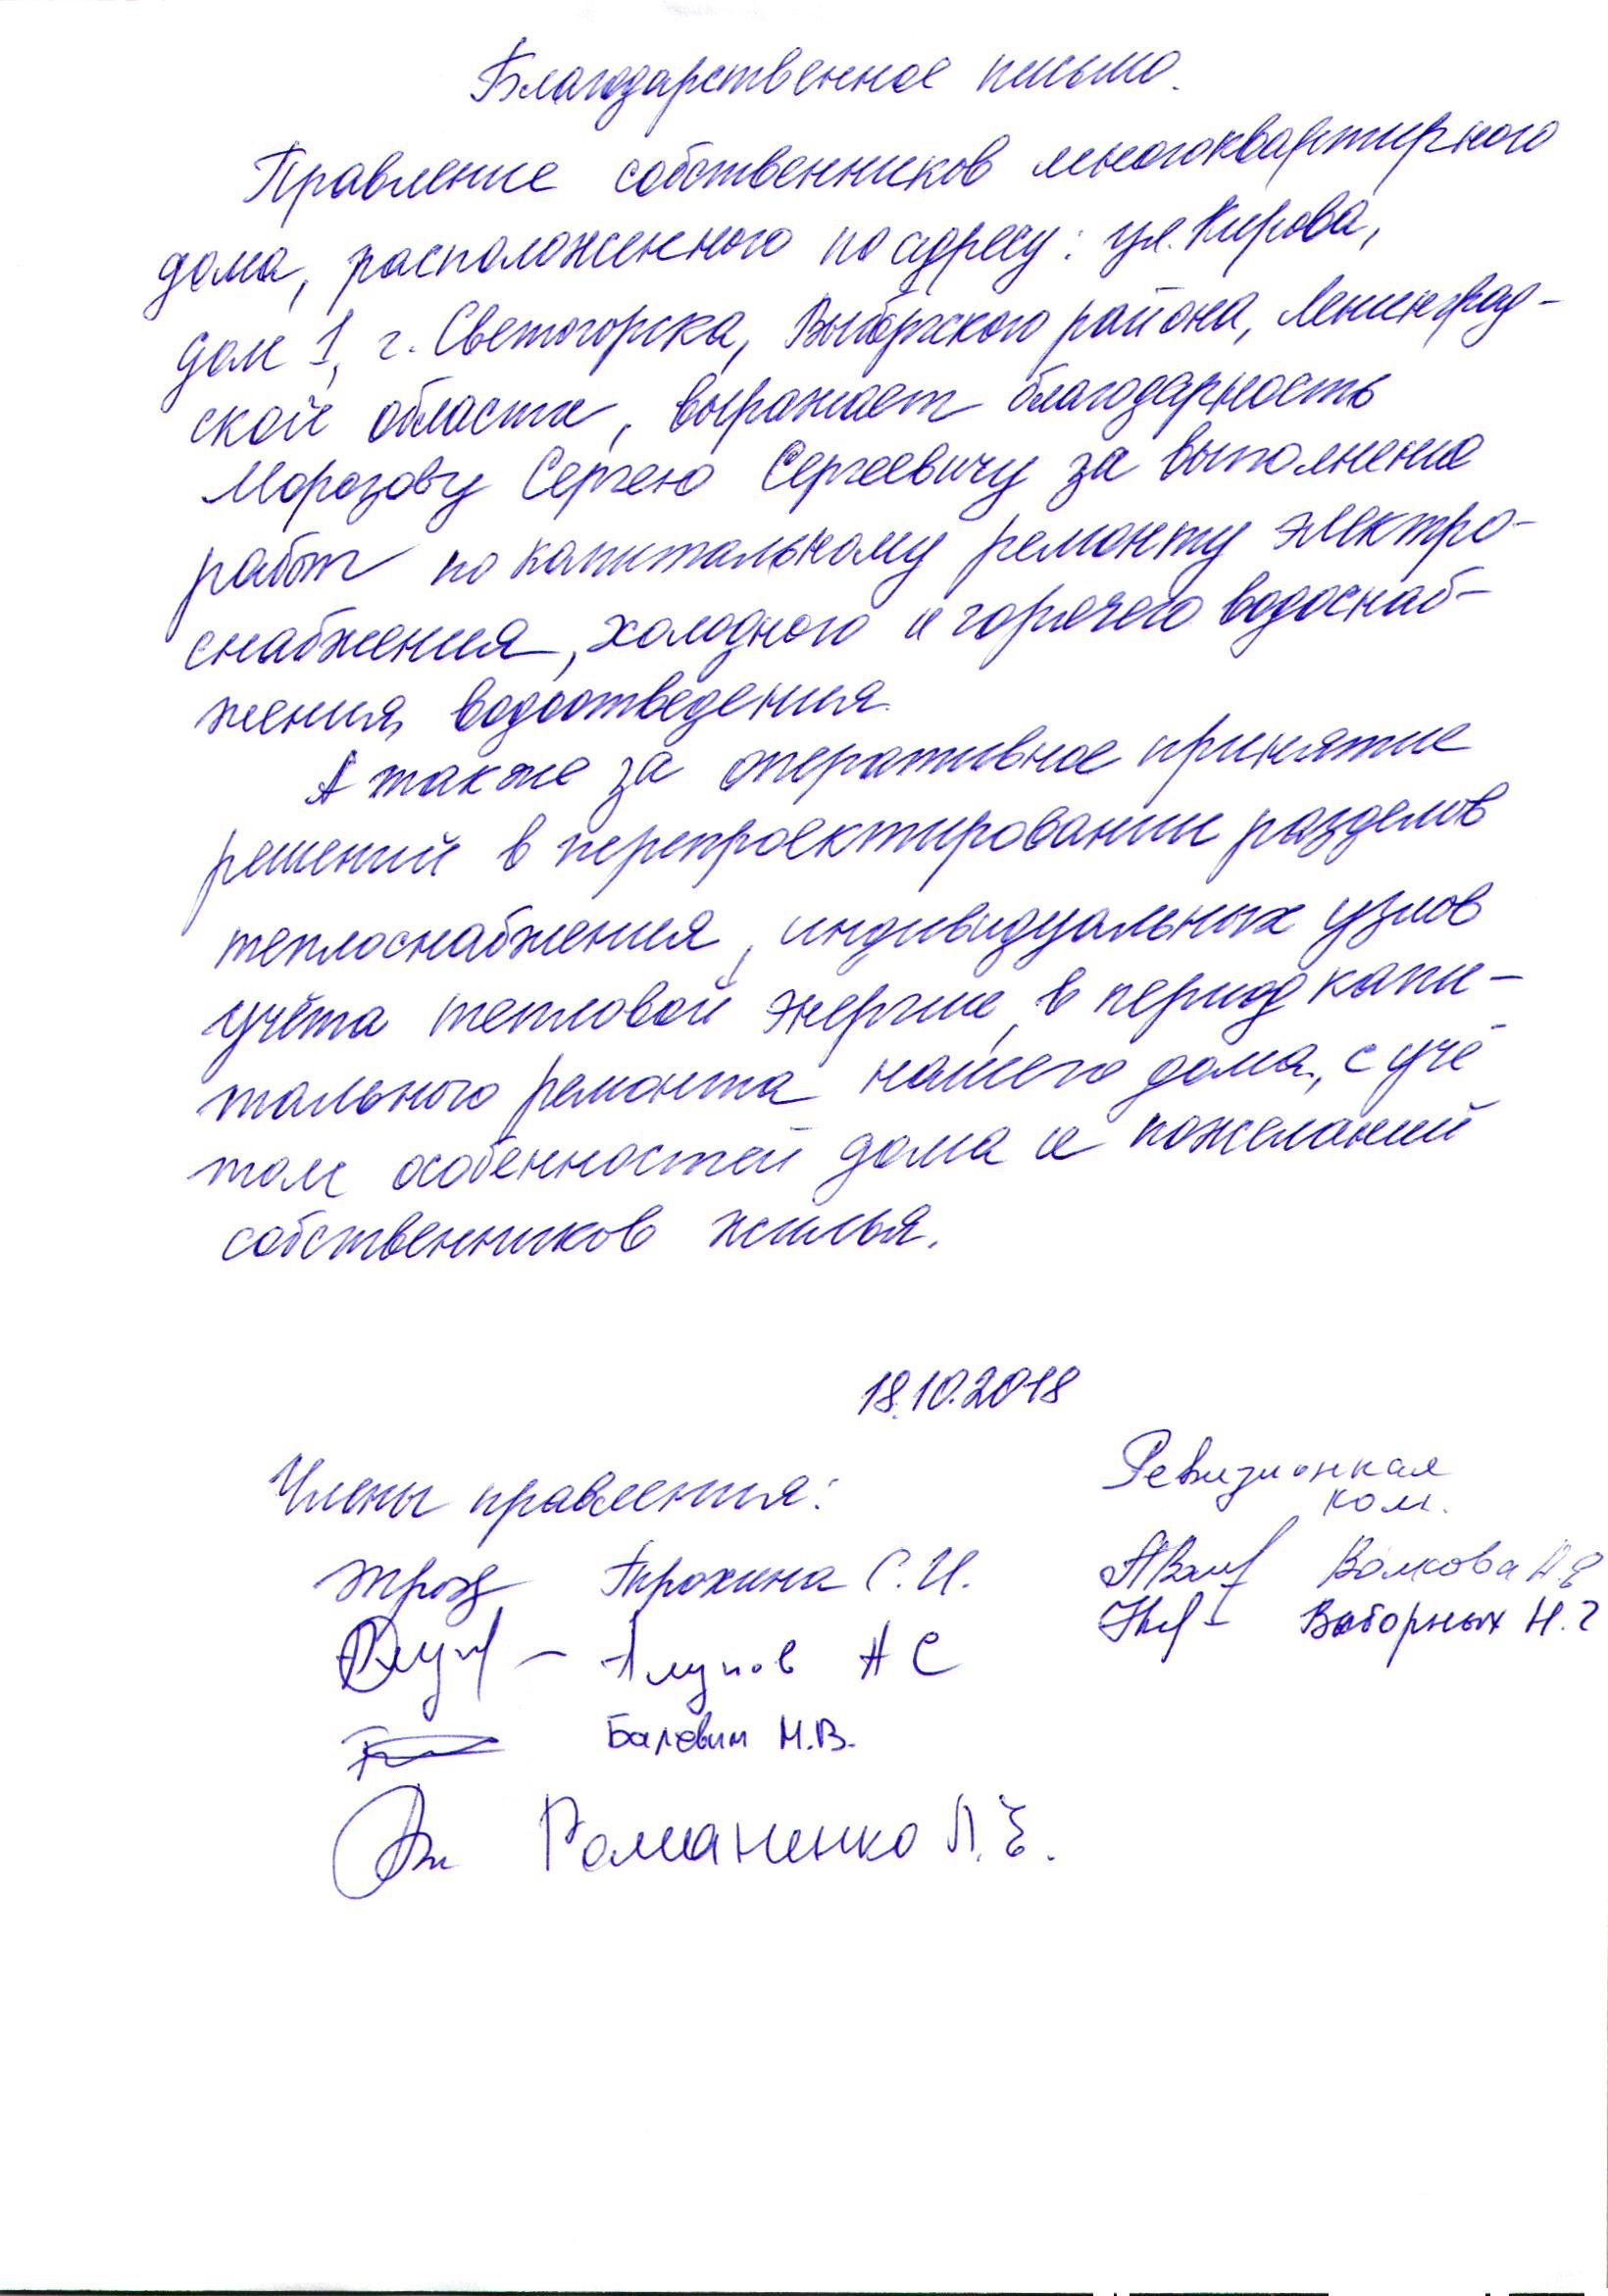 Благодарственное письмо.
Правление собственников многоквартирного
дома, расположенного по адресу: ул. Кирова,
дом 1, г. Светогорска, Выборгского района, Ленинград-
ской области, выражает благодарность
Морозову Сергею Сергеевичу за выполнение
работ по капитальному ремонту электро-
снабжения, холодного и горячего водоснаб-
жения, водоотведения.
А также за оперативное принятие
решений в перепроектировании разделов
теплоснабжения, индивидуальных узлов
учёта тепловой энергии, в период капи-
тального ремонта нашего дома, с учё-
том особенностей дома и пожеланий
собственников жилья.
18.10.2018
Члены правления:
Трохина С.И.
А С
Н.В.
Романенко Л.Е.
Ревизионная
ком.
Волкова
Выборных Н.